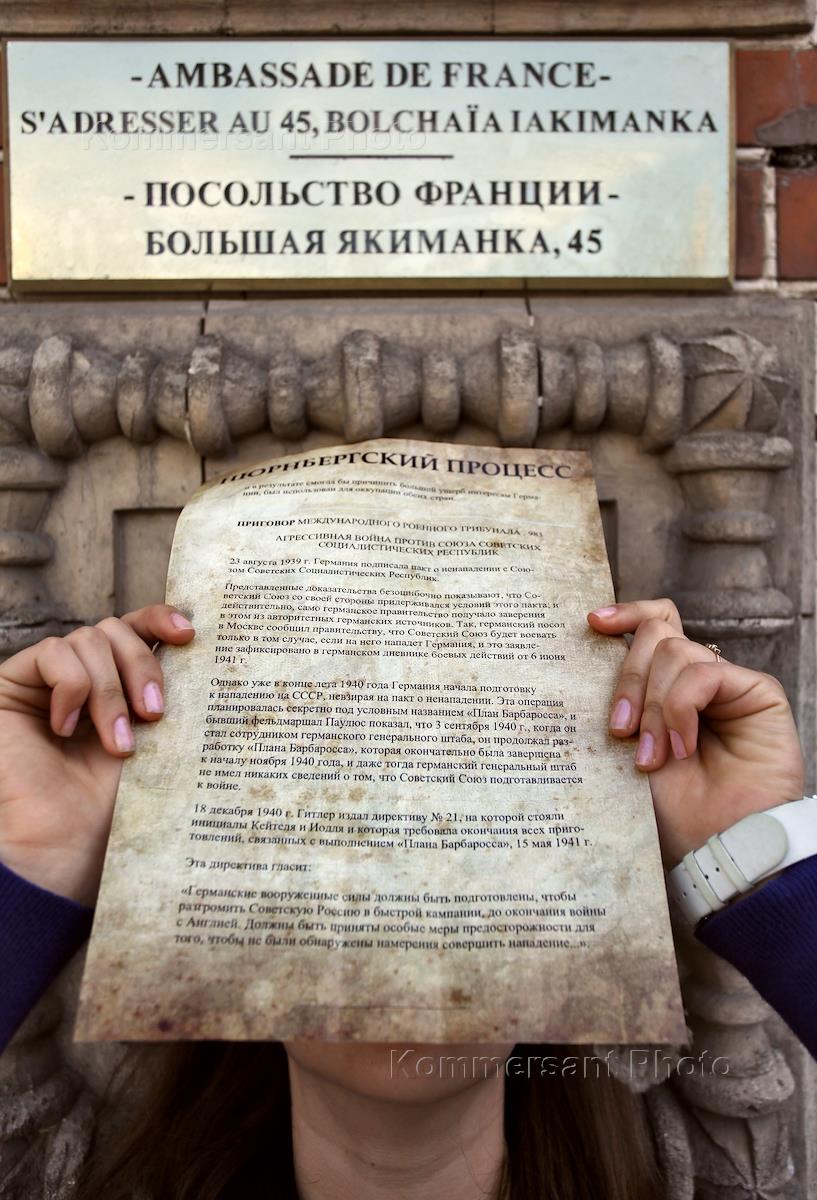 -AMBASSADE DE FRANCE-
S'ADRESSER AU 45, BOLCHAÏA IAKIMANKA
Kommersant Photo
-ПОСОЛЬСТВО ФРАНЦИИ-
БОЛЬШАЯ ЯКИМАНКА, 45
НЮРНБЕРГСКИЙ ПРОЦЕСС
и в результате смогла бы причинить большой ущерб интересам Герма-
нии, был использован для оккупации обеих стран
ПРИГОВОР МЕЖДУНАРОДНОГО ВОЕННОГО ТРИБУНАЛА 983
АГРЕССИВНАЯ ВОЙНА ПРОТИВ СОЮЗА СОВЕТСКИХ
СОЦИАЛИСТИЧЕСКИХ РЕСПУБЛИК
23 августа 1939 г. Германия подписала пакт о ненападении с Сою-
зом Советских Социалистических Республик.
Представленные доказательства безошибочно показывают, что Со-
ветский Союз со своей стороны придерживался условий этого пакта; и
действительно, само германское правительство получало заверения
в этом из авторитетных германских источников. Так, германский посол
в Москве сообщил правительству, что Советский Союз будет воевать
только в том случае, если на него нападет Германия, и это заявле-
ние зафиксировано в германском дневнике боевых действий от 6 июня
1941 г.
Однако уже в конце лета 1940 года Германия начала подготовку
к нападению на СССР, невзирая на пакт о ненападении. Эта операция
планировалась секретно под условным названием «План Барбаросса», и
бывший фельдмаршал Паулюс показал, что 3 сентября 1940 г., когда он
стал сотрудником германского генерального штаба, он продолжал раз-
работку «Плана Барбаросса», которая окончательно была завершена
к началу ноября 1940 года, и даже тогда германский генеральный штаб
не имел никаких сведений о том, что Советский Союз подготавливается
к войне.
18 декабря 1940 г. Гитлер издал директиву № 21, на которой стояли
инициалы Кейтеля и Иодля и которая требовала окончания всех приго-
товлений, связанных с выполнением «Плана Барбаросса», 15 мая 1941 г.
Эта директива гласит:
«Германские вооруженные силы должны быть подготовлены, чтобы
разгромить Советскую Россию в быстрой кампании, до окончания войны
с Англией. Должны быть приняты особые меры предосторожности для
того, чтобы не были обнаружены намерения совершить нападение...».
Kommersant Photo